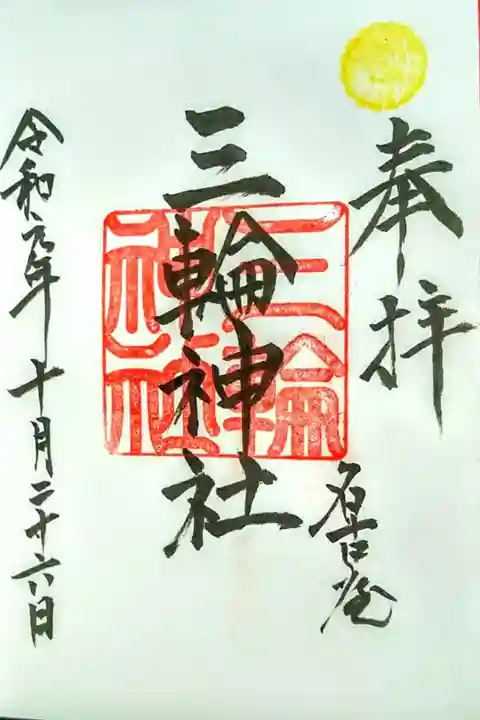 奉拝
名古屋
三輪神社
三輪
神社
令和元年十月二十六日